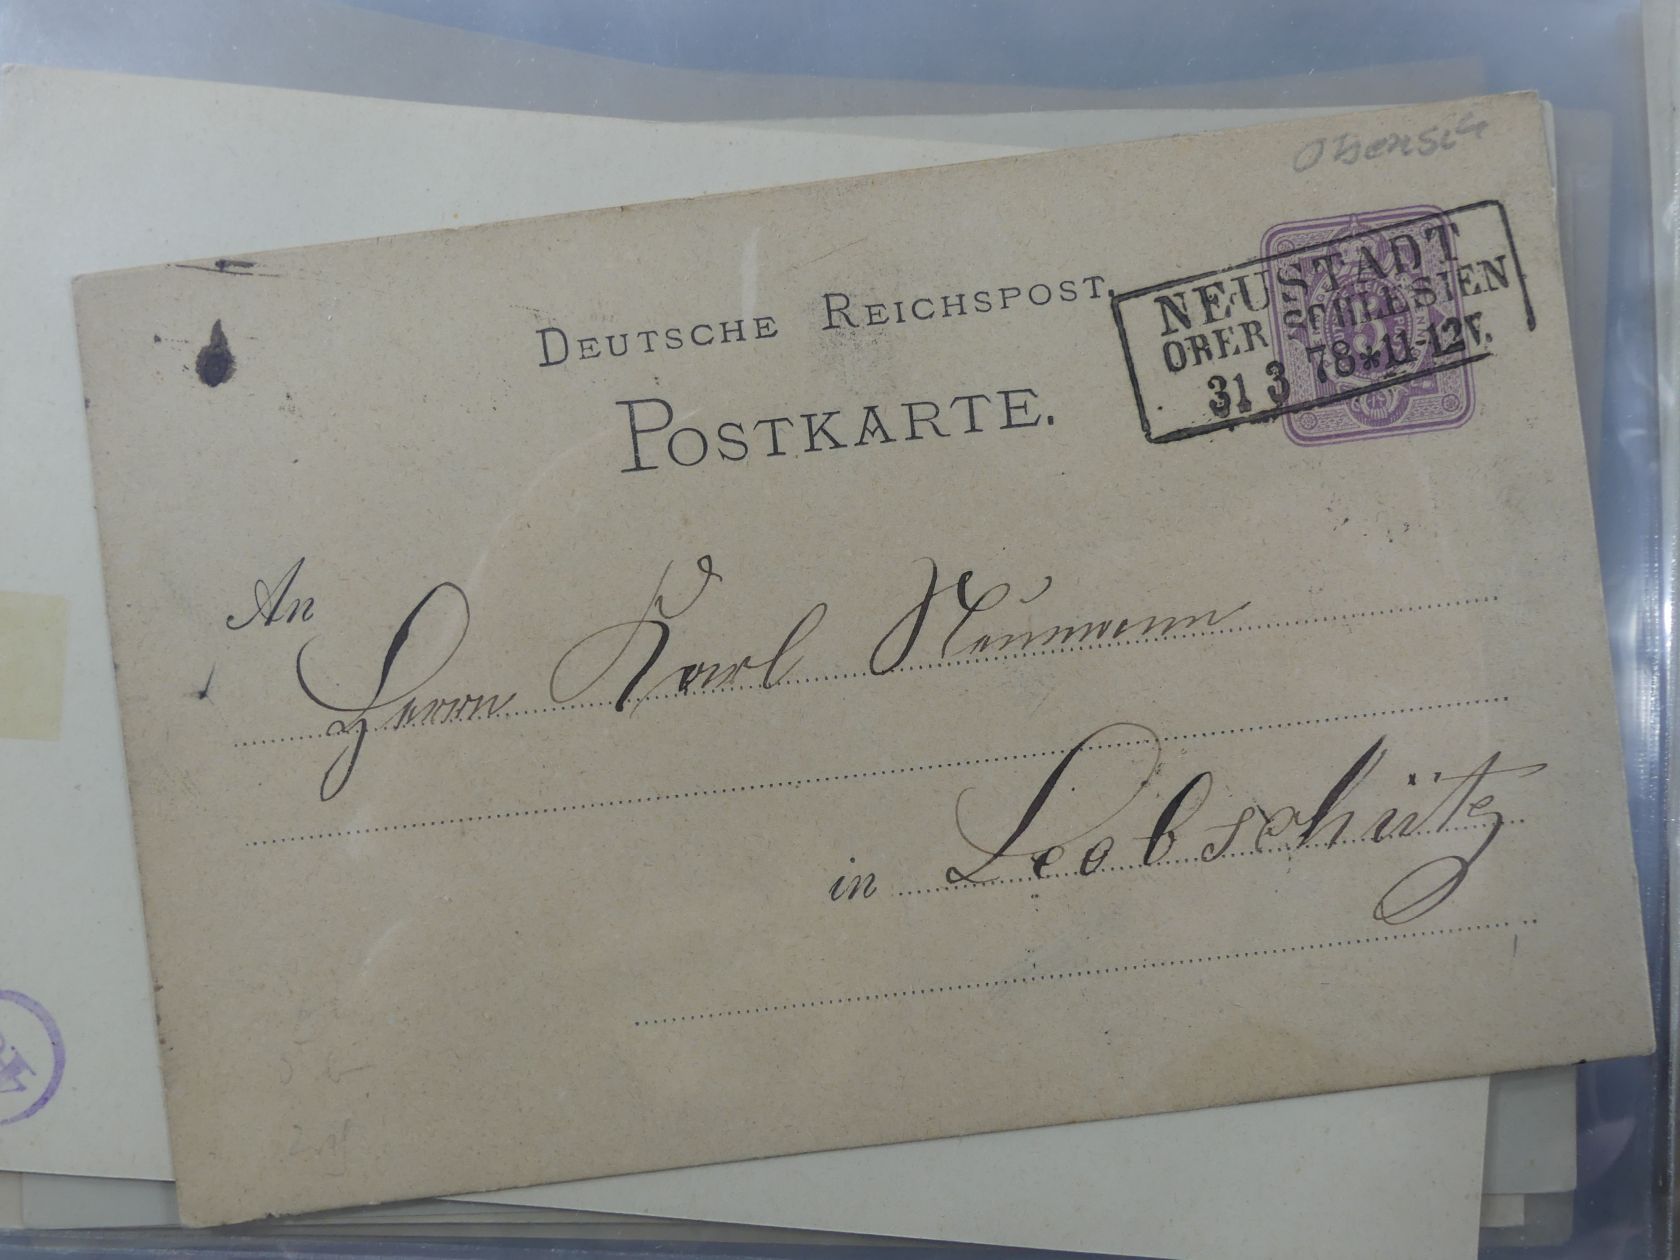 DEUTSCHE REICHSPOST.
POSTKARTE.
NEUSTADT
OBER SCHLESIEN
31 3 78*11-12V.
An
Herrn Karl Neumann
in Leobschütz